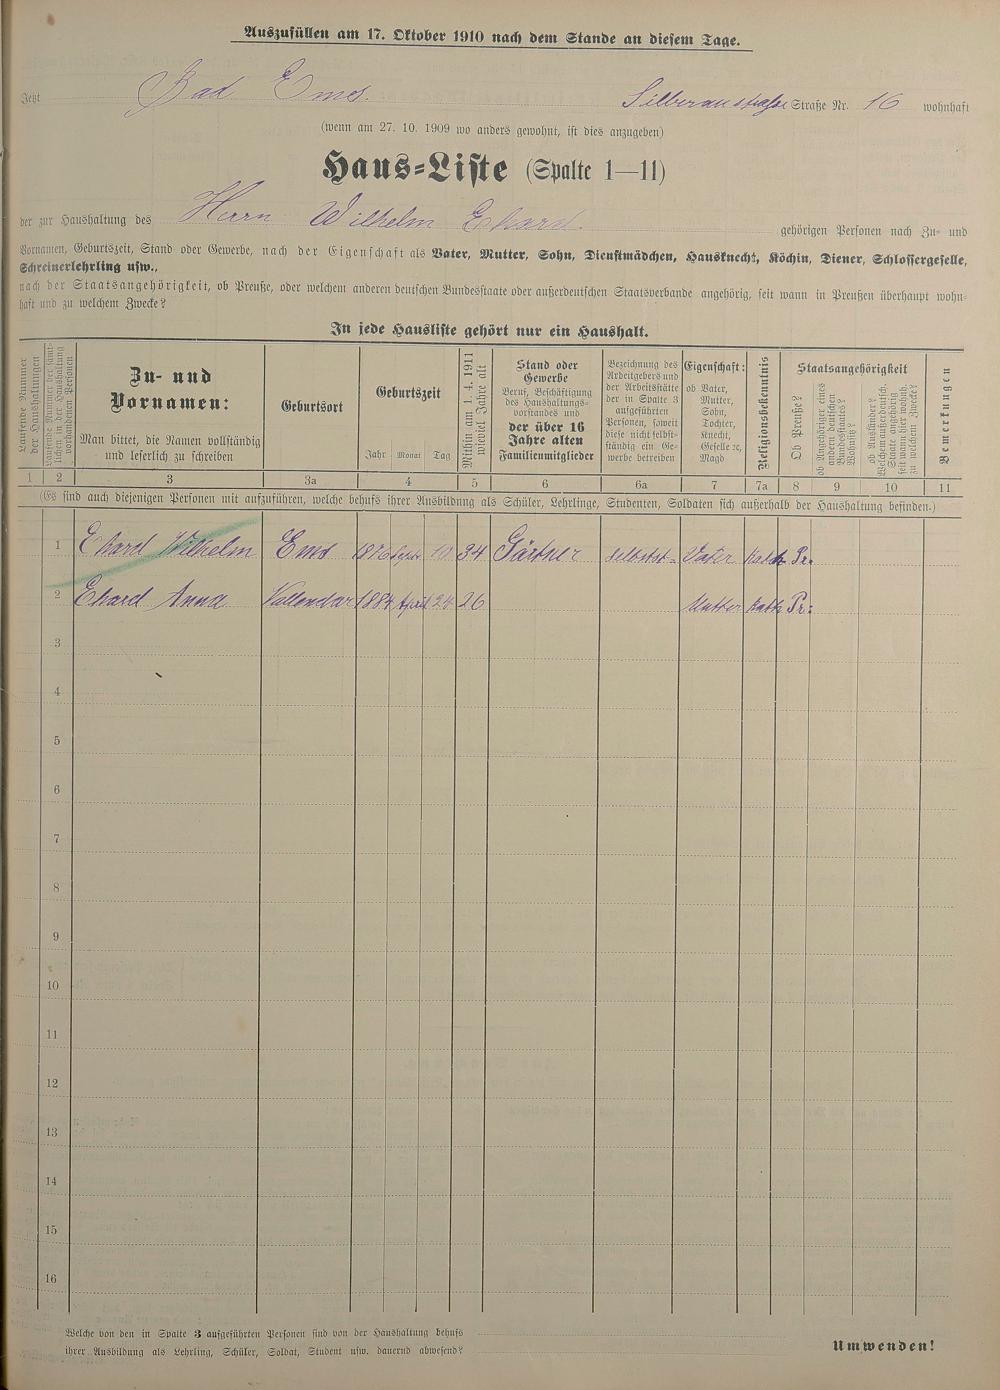 Auszufüllen am 17. Oktober 1910 nach dem Stande an diesem Tage.
Jetzt Bad Ems. Silberaustraße Straße Nr. 16 wohnhaft
(wenn am 27. 10. 1909 wo anders gewohnt, ist dies anzugeben)
Haus=Liste (Spalte 1—11)
der zur Haushaltung des Herrn Wilhelm Ehard. gehörigen Personen nach Zu- und
Vornamen, Geburtszeit, Stand oder Gewerbe, nach der Eigenschaft als Vater, Mutter, Sohn, Dienstmädchen, Hausknecht, Köchin, Diener, Schlossergeselle,
Schreinerlehrling usw.,
nach der Staatsangehörigkeit, ob Preuße, oder welchem anderen deutschen Bundesstaate oder außerdeutschen Staatsverbande angehörig, seit wann in Preußen überhaupt wohn-
haft und zu welchem Zwecke?
In jede Hausliste gehört nur ein Haushalt.
Laufende Nummer
der Haushaltungen
Laufende Nummer der sämt-
lichen in der Haushaltung
vorhandenen Personen
Zu- und
Vornamen:
Man bittet, die Namen vollständig
und leserlich zu schreiben
Geburtsort
Geburtszeit
Jahr Monat Tag
Mithin am 1. 4. 1911
wieviel Jahre alt
Stand oder
Gewerbe
Beruf, Beschäftigung
des Haushaltungs-
vorstandes und
der über 16
Jahre alten
Familienmitglieder
Bezeichnung des
Arbeitgebers und
der Arbeitsstätte
der in Spalte 3
aufgeführten
Personen, soweit
diese nicht selbst-
ständig ein Ge-
werbe betreiben
Eigenschaft:
ob Vater,
Mutter,
Sohn,
Tochter,
Knecht,
Geselle ec,
Magd
Religionsbekenntnis
Staatsangehörigkeit
Ob Preuße?
ob Angehöriger eines
andern deutschen
Bundesstaates?
Wohnsitz?
ob Ausländer?
Welchem außerdeutsch.
Staate angehörig
seit wann hier wohnh.
zu welchem Zwecke?
Bemerkungen
1 2 3 3a 4 5 6 6a 7 7a 8 9 10 11
(Es sind auch diejenigen Personen mit aufzuführen, welche behufs ihrer Ausbildung als Schüler, Lehrlinge, Studenten, Soldaten sich außerhalb der Haushaltung befinden.)
1 Ehard Wilhelm Ems 1876 Sept. 10 34 Gärtner selbstst. Vater Kath Pr.
2 Ehard Anna Vallendar 1884 April 24 26 Mutter Kath Pr:
3
4
5
6
7
8
9
10
11
12
13
14
15
16
Welche von den in Spalte 3 aufgeführten Personen sind von der Haushaltung behufs
ihrer Ausbildung als Lehrling, Schüler, Soldat, Student usw. dauernd abwesend?
Umwenden!